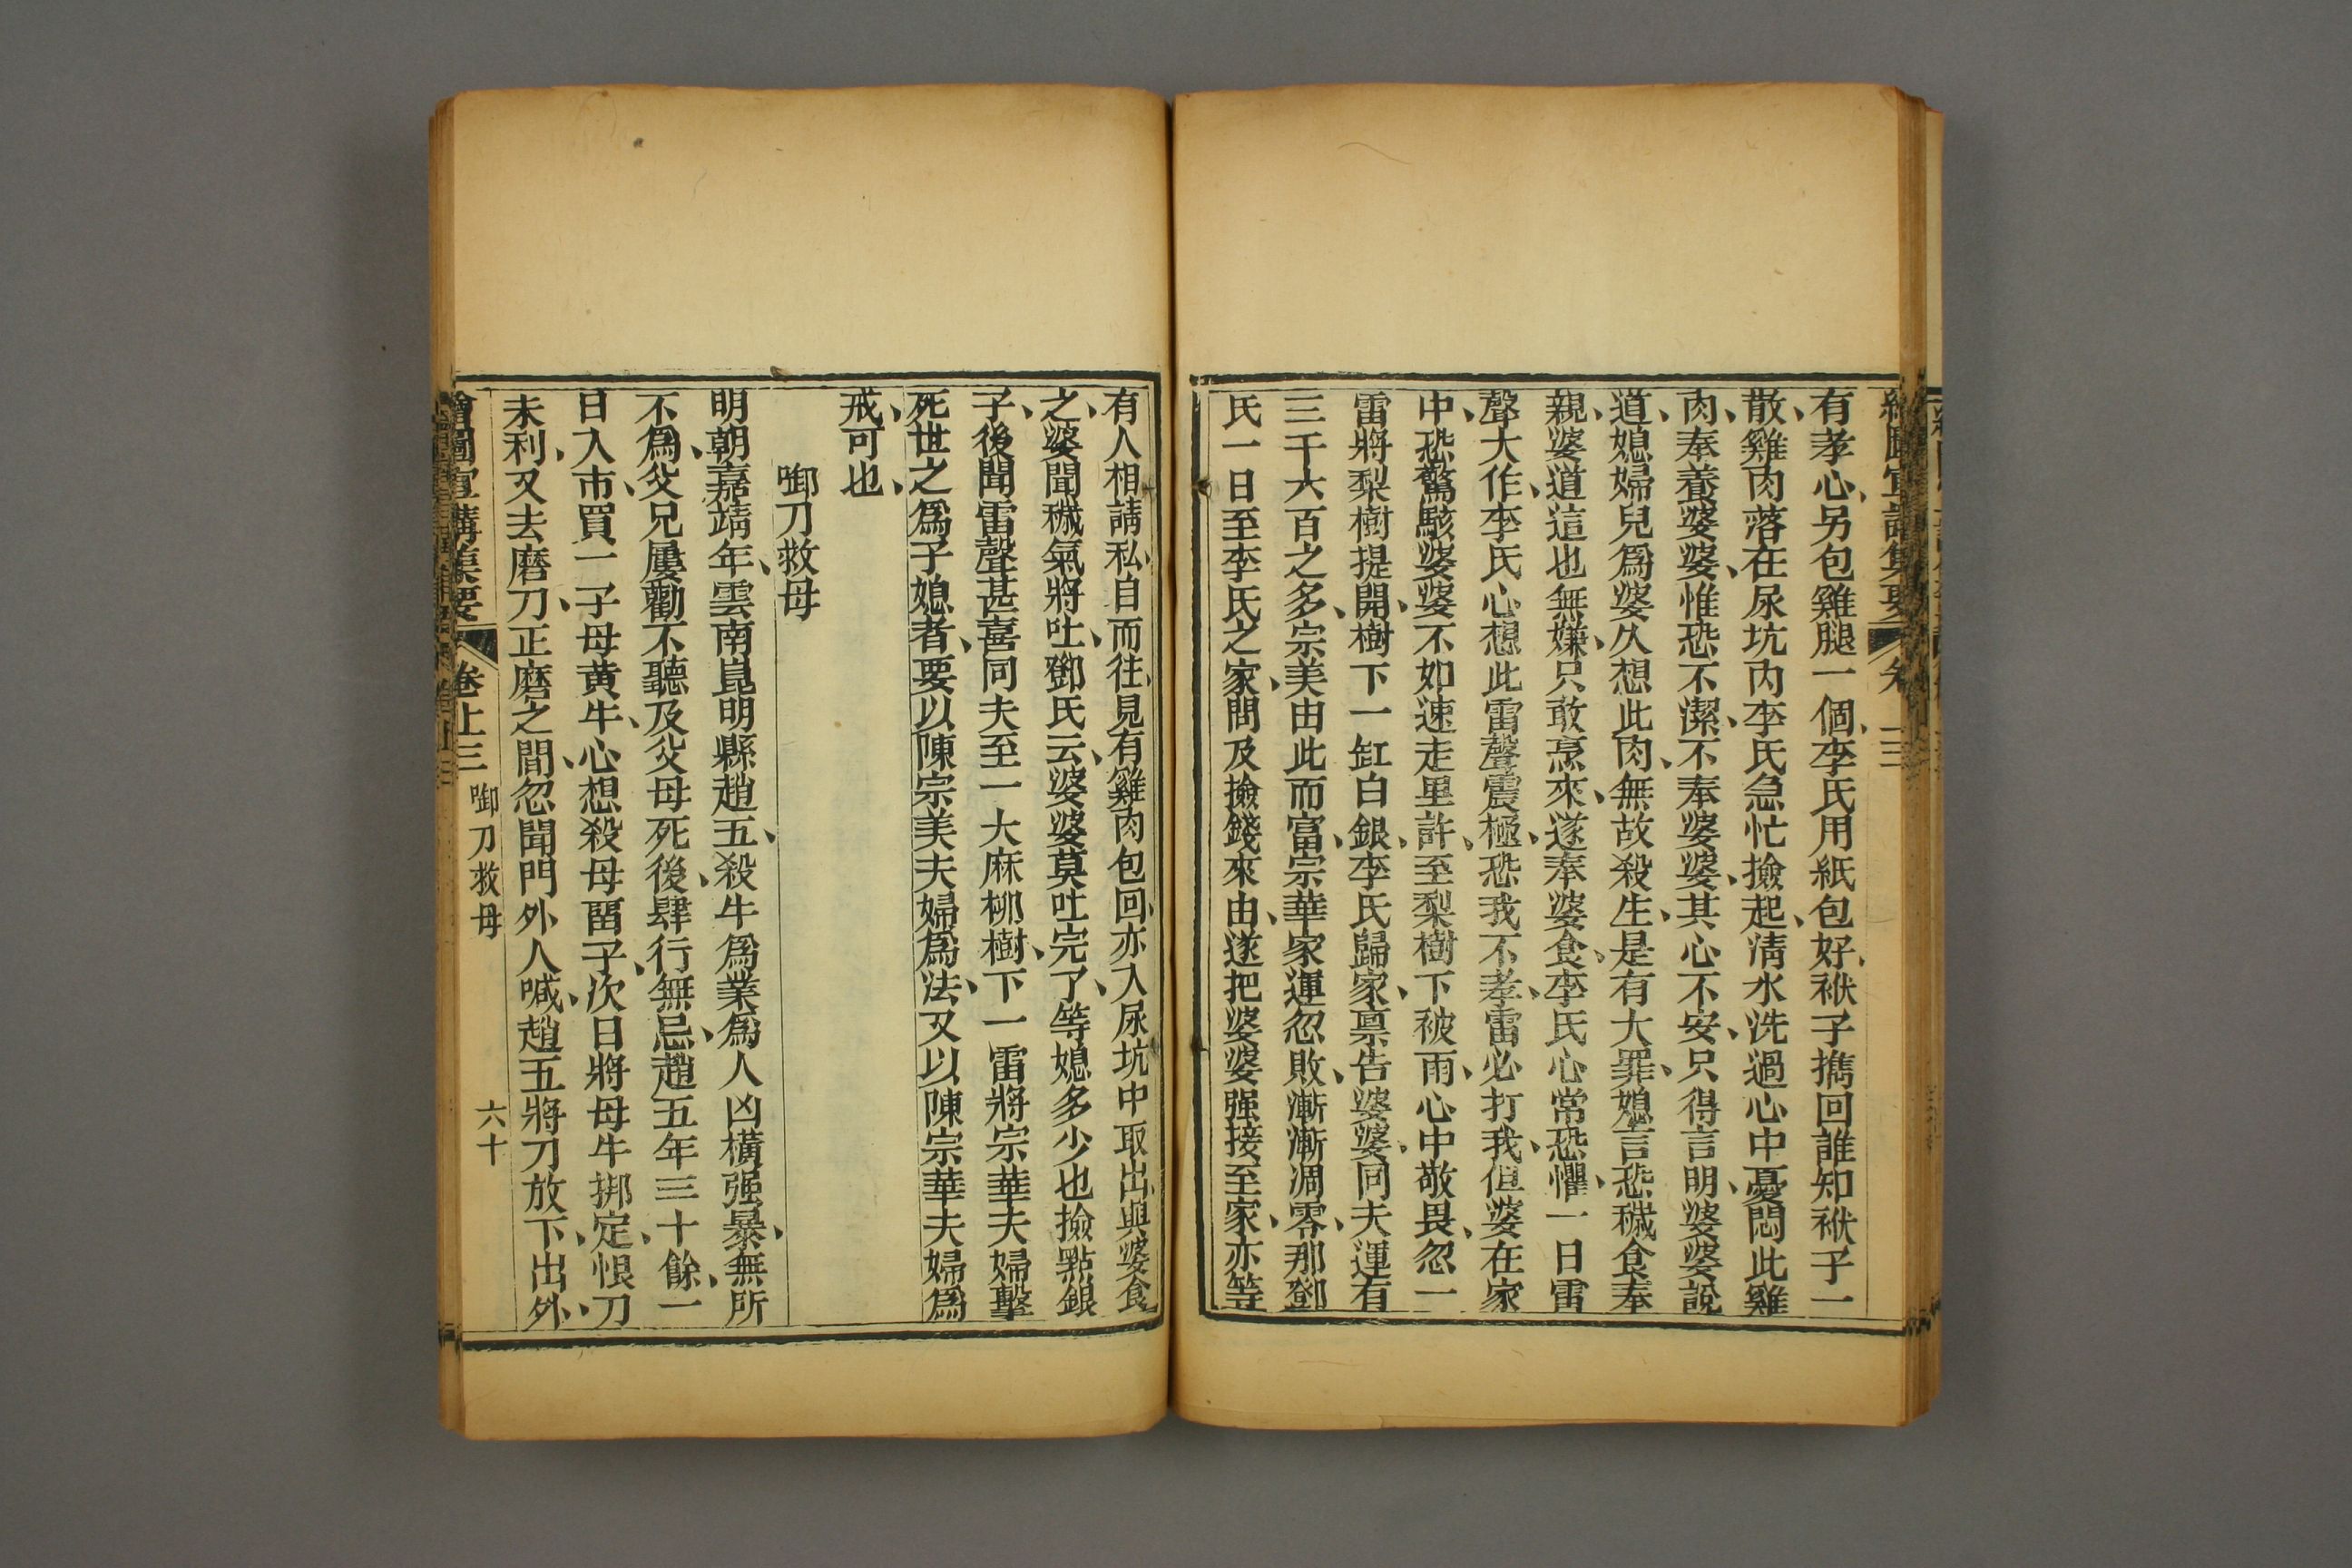 有孝心、另包雞腿一個、李氏用紙包好、袱子攜回誰知袱子一
散、雞肉落在尿坑內李氏急忙撿起、淸水洗過心中憂悶此雞
肉、奉養婆婆、惟恐不潔、不奉婆婆、其心不安、只得言明、婆婆說
道、媳婦兒爲婆久想此肉、無故殺生、是有大罪、媳言恐穢食奉
親、婆道這也無嫌、只敢烹來、遂奉婆食、李氏心常恐懼、一日雷
聲大作、李氏心想此雷聲震極、恐我不孝、雷必打我、但婆在家
中、恐驚駭婆婆不如速走里許、至梨樹下被雨、心中敬畏、忽一
雷將梨樹提開、樹下一缸白銀、李氏歸家、稟告婆婆、同夫運有
三千六百之多、宗美由此而富、宗華家運忽敗、漸漸凋零、那鄧
氏一日至李氏之家、問及撿錢來由、遂把婆婆强接至家、亦等
有人相請私、自而往、見有雞肉包回、亦入尿坑中取出、與婆食
之、婆聞穢氣將吐、鄧氏云、婆婆莫吐完了、等媳多少也撿點銀
子、後聞雷聲甚喜同夫至一大麻柳樹、下一雷將宗華夫婦擊
死世之爲子媳者、要以陳宗美夫婦爲法、又以陳宗華夫婦爲
戒、可也、
啣刀救母
明朝嘉靖年、雲南崑明縣趙五、殺牛爲業爲人凶橫强暴、無所
不爲、父兄屢勸不聽及父母死後、肆行無忌、趙五年三十餘、一
日入市、買一子母黃牛、心想殺母畱子、次日將母牛挷定、恨刀
未利、又去磨刀、正磨之間、忽聞門外人喊、趙五將刀放下、出外、
繪圖宣講集要 卷上三 啣刀救母 六十